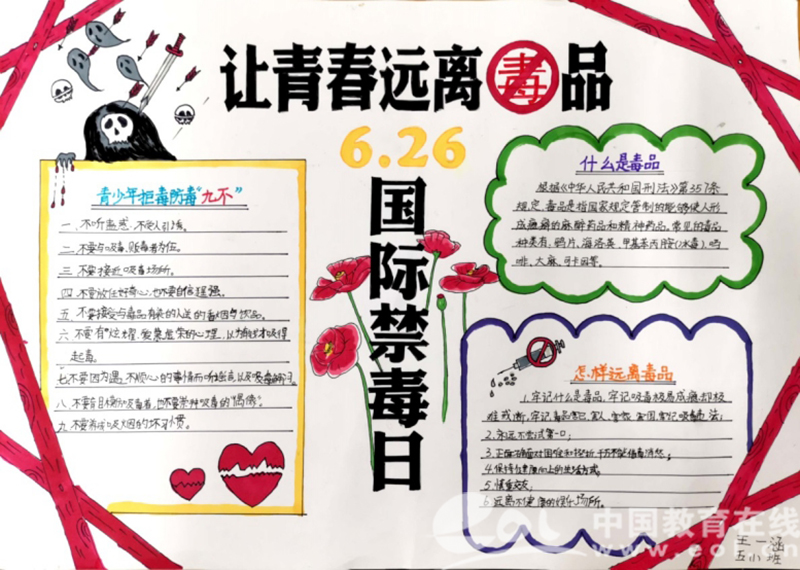 让青春远离毒品
6.26
国际禁毒日
青少年拒毒防毒"九不"
一、不听蛊惑,不受人引诱。
二、不要与吸毒、贩毒者为伍。
三、不要接近吸毒场所。
四、不要放任好奇心,也不要自信逞强。
五、不要接受与毒品有染的人送的香烟与饮品。
六、不要有"炫耀、
的心理,以为有钱才吸得
起毒。
七、不要因为遇不顺心的事情而
八、不要盲目模仿吸毒者,也不要崇拜吸毒的"偶像"。
九、不要养成吸烟的坏习惯。
什么是毒品
根据《中华人民共和国刑法》第357条
规定,毒品是指国家规定管制的能够使人形
成瘾癖的麻醉药品和精神药品。常见的毒品
种类有:鸦片、海洛英、甲基苯丙胺(冰毒)、吗
啡、大麻、可卡因等。
怎样远离毒品
1.牢记什么是毒品,牢记吸毒极易成瘾却极
难戒断,牢记毒品害己、
2.永远不尝试第一口;
3.正确面对困难和挫折,千万不能借毒消愁;
4.保持健康向上的生活方式。
5.慎重交友;
6.远离不健康的娱乐场所。
中国教育在线
www.eol.cn
王一涵
五小班